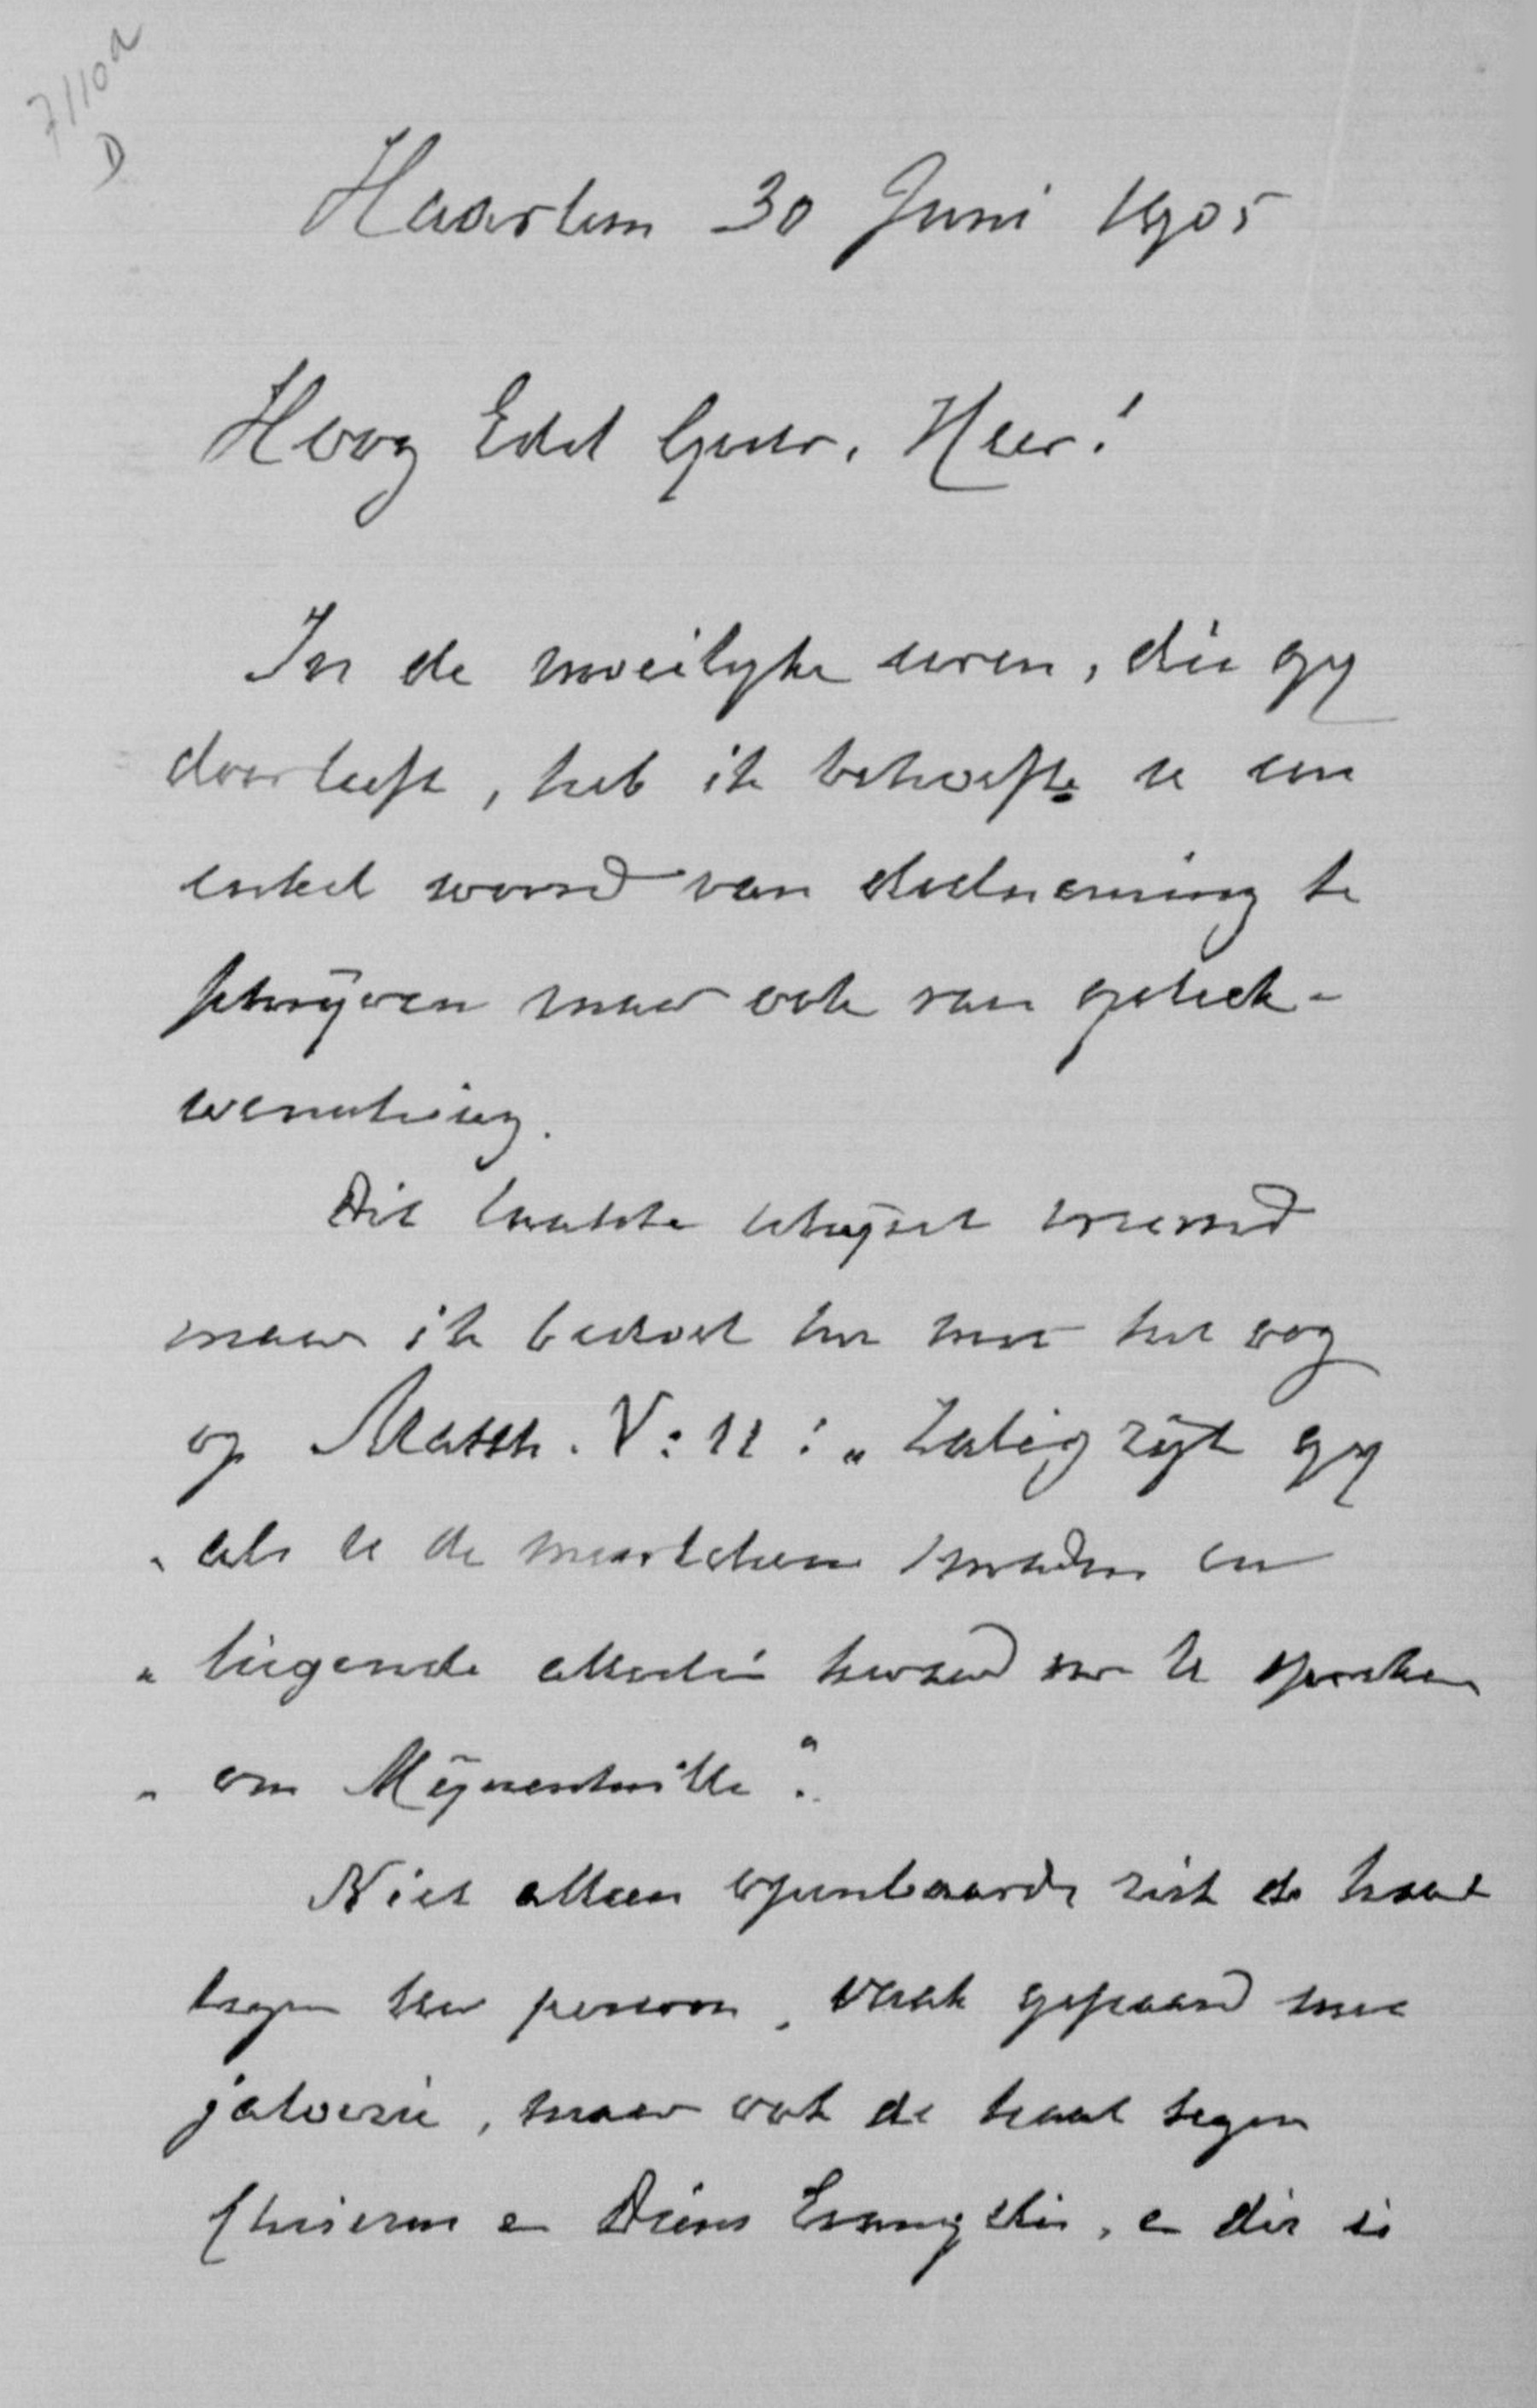 7110a
D
Haarlem 30 Juni 1905
Hoog Edel Gestr. Heer!
In de moeilyke uren, die gy
doorleeft, heb ik behoefte u een
enkel woord van deelneming te
schryven maar ook van geluk-
wensching.
Dit laatste schynt vreemd
maar ik bedoel het met het oog
op Matth. V: 11: „Zalig zyt gy
„als u de menschen smaden en
„liegende allerlei kwaad van U spreken
„om Mynentwille".
Niet alleen openbaarde zich de haat
tegen Uw persoon, vaak gepaard met
jaloezie, maar ook de haat tegen
Christus en Diens Evangelie, en dit is